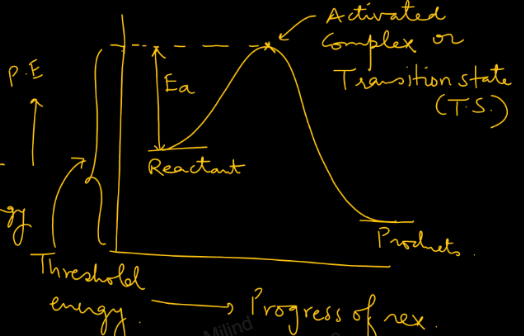 Activated
Complex or
Transition state
(T.S.)
P.E
Ea
Reactant
Products.
Threshold
energy.
Progress of rex.
Milind